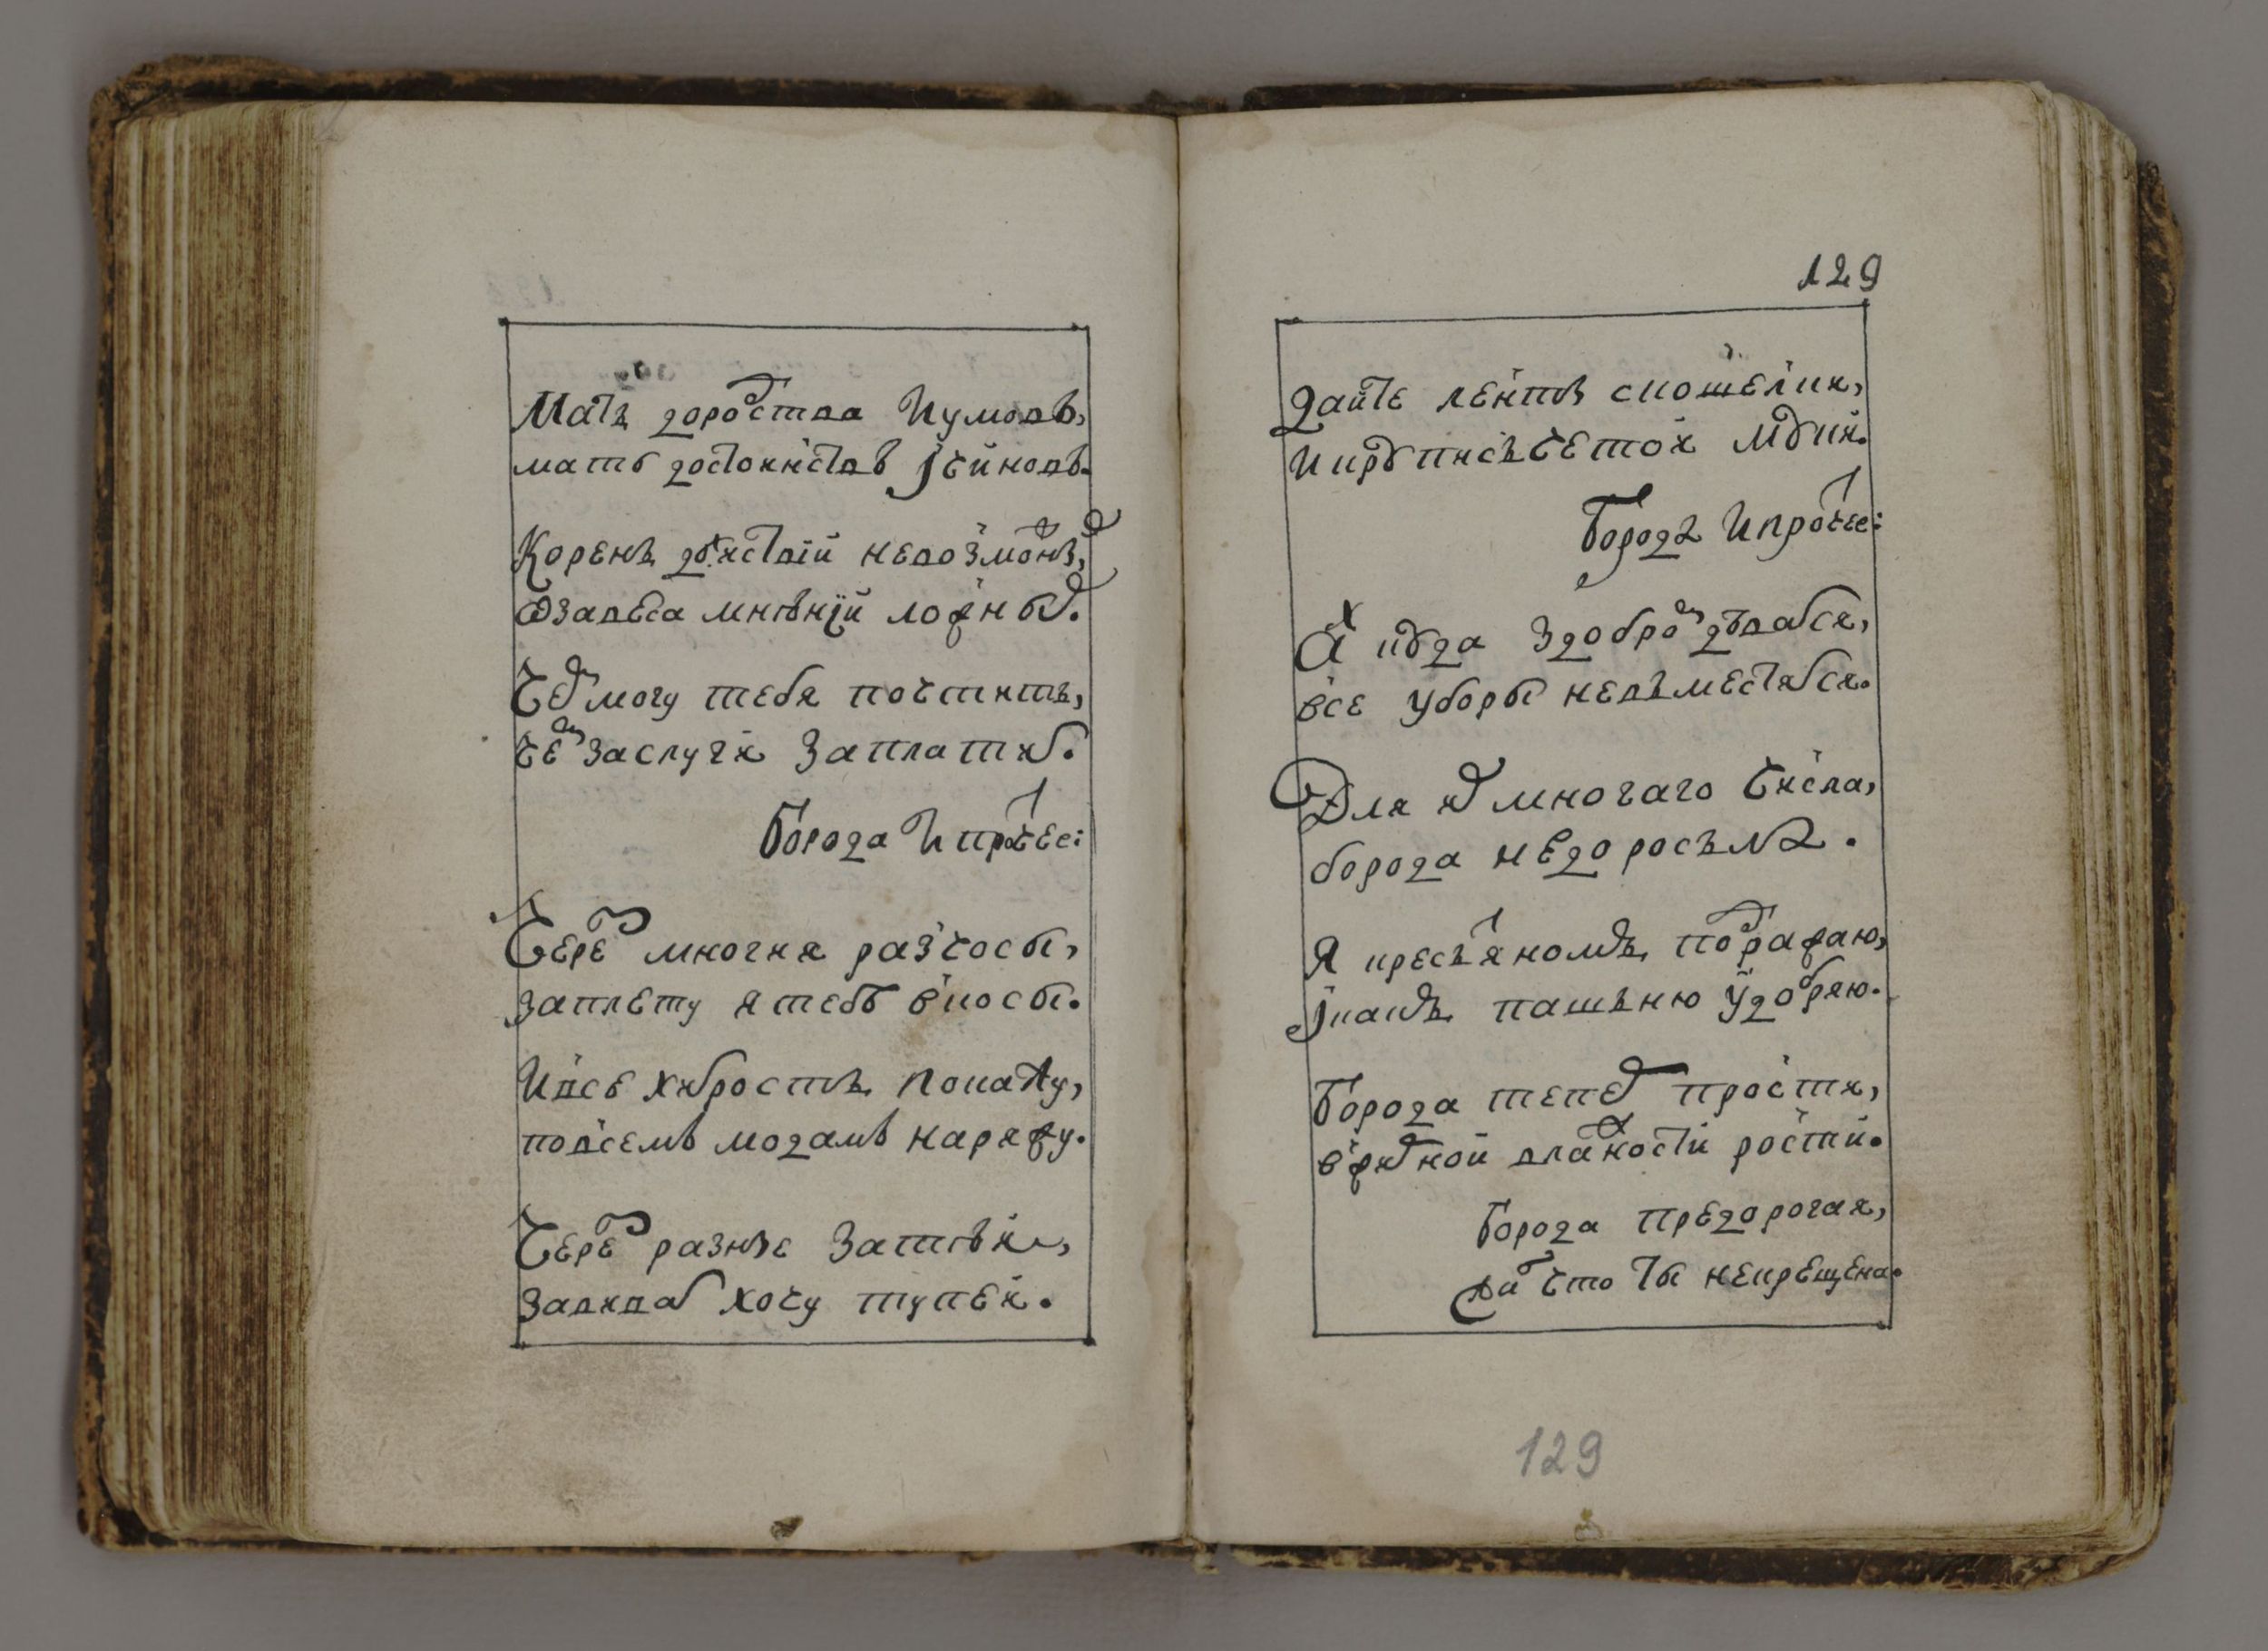 Мать дородства И умовъ,
мать достоинствъ Ј чиновъ.
Корень дѣиствій невозможныхъ,
Ѿ завеса мнѣнїй ложныхъ.
Чемъ могу тебя почтить,
чемъ заслуги заплатить.
Борода И прочее:
Черезъ многия разчосы,
заплету я тебѣ в косы.
И всѣ хитрость покажу,
по всемъ модамъ наряжу.
Черезъ разные затѣи,
завивать хочу тупеи.
129
Дайте ленты с кошельки,
И круписьчетои муки.
Бородѣ И прочее:
Ах куда здобромъ деваться,
все уборы не въместятся.
Для ихъ многаго числа,
борода недоросьла.
Я кресьяномъ подражаю,
Ј какъ пашьню удобряю.
Борода теперь прости,
в жирной влажности рости.
Борода предорогая,
жаль что ты некрещена.
129